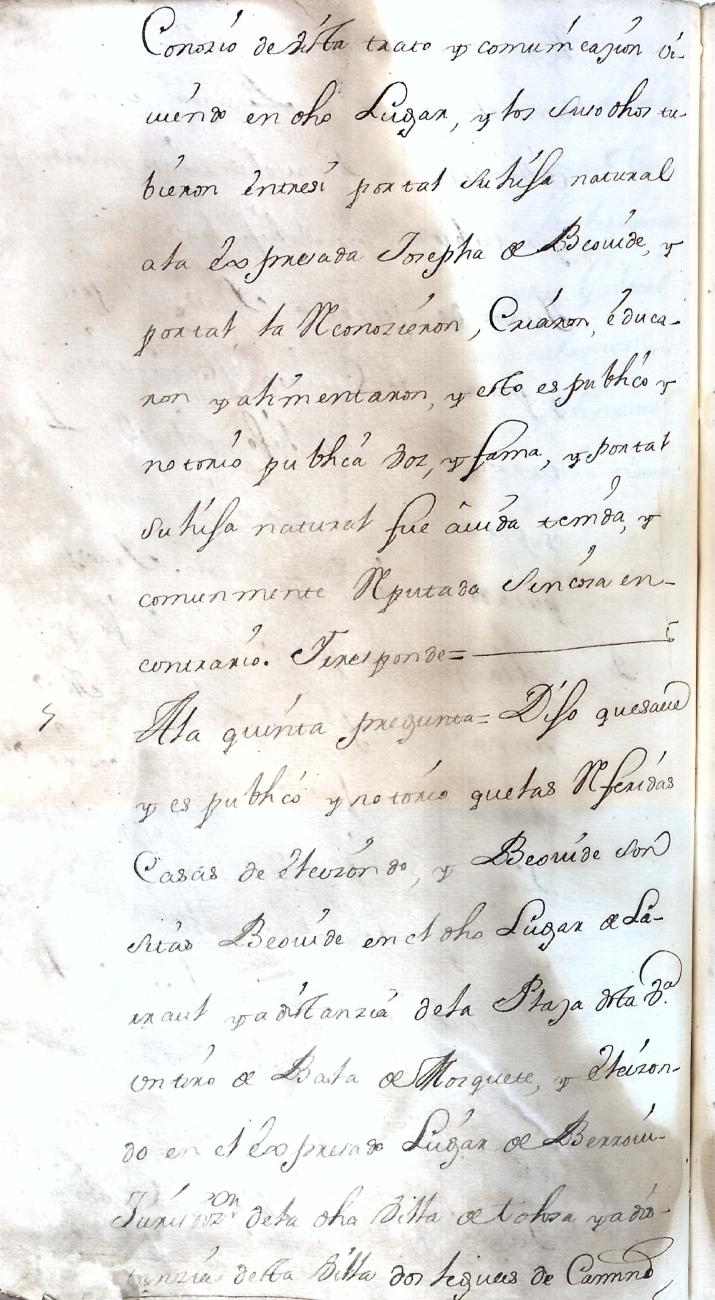 Conozio de vista trato y comunicazion vi-
uiendo en dho Lugar, y los suso dhos tu-
bieron entresi por tal su hija natural
ala expresada Josepha de Beouide, y
por tal, la Reconozieron, Criaron, educa-
ron y alimentaron, y esto es publico y
notorio publica voz, y fama, y por tal
su hija natural fue auida tenida, y
comunmente Reputada sin cosa en-
contrario. Y responde=
5 Ala quinta pregunta= Dijo quesaue
y es publico y notorio quelas Referidas
Casas de eleizondo, y Beouide son
sitas Beouide en el dho Lugar de La-
rraul y a distanzia dela Plaza desta va.
vn tiro de Bala de Mosquete, y eleizon-
do en el expresado Lugar de Berroui-
Jurisizon dela dha Villa de tolosa y a dis-
tanzia desta Villa dos leguas de Camino